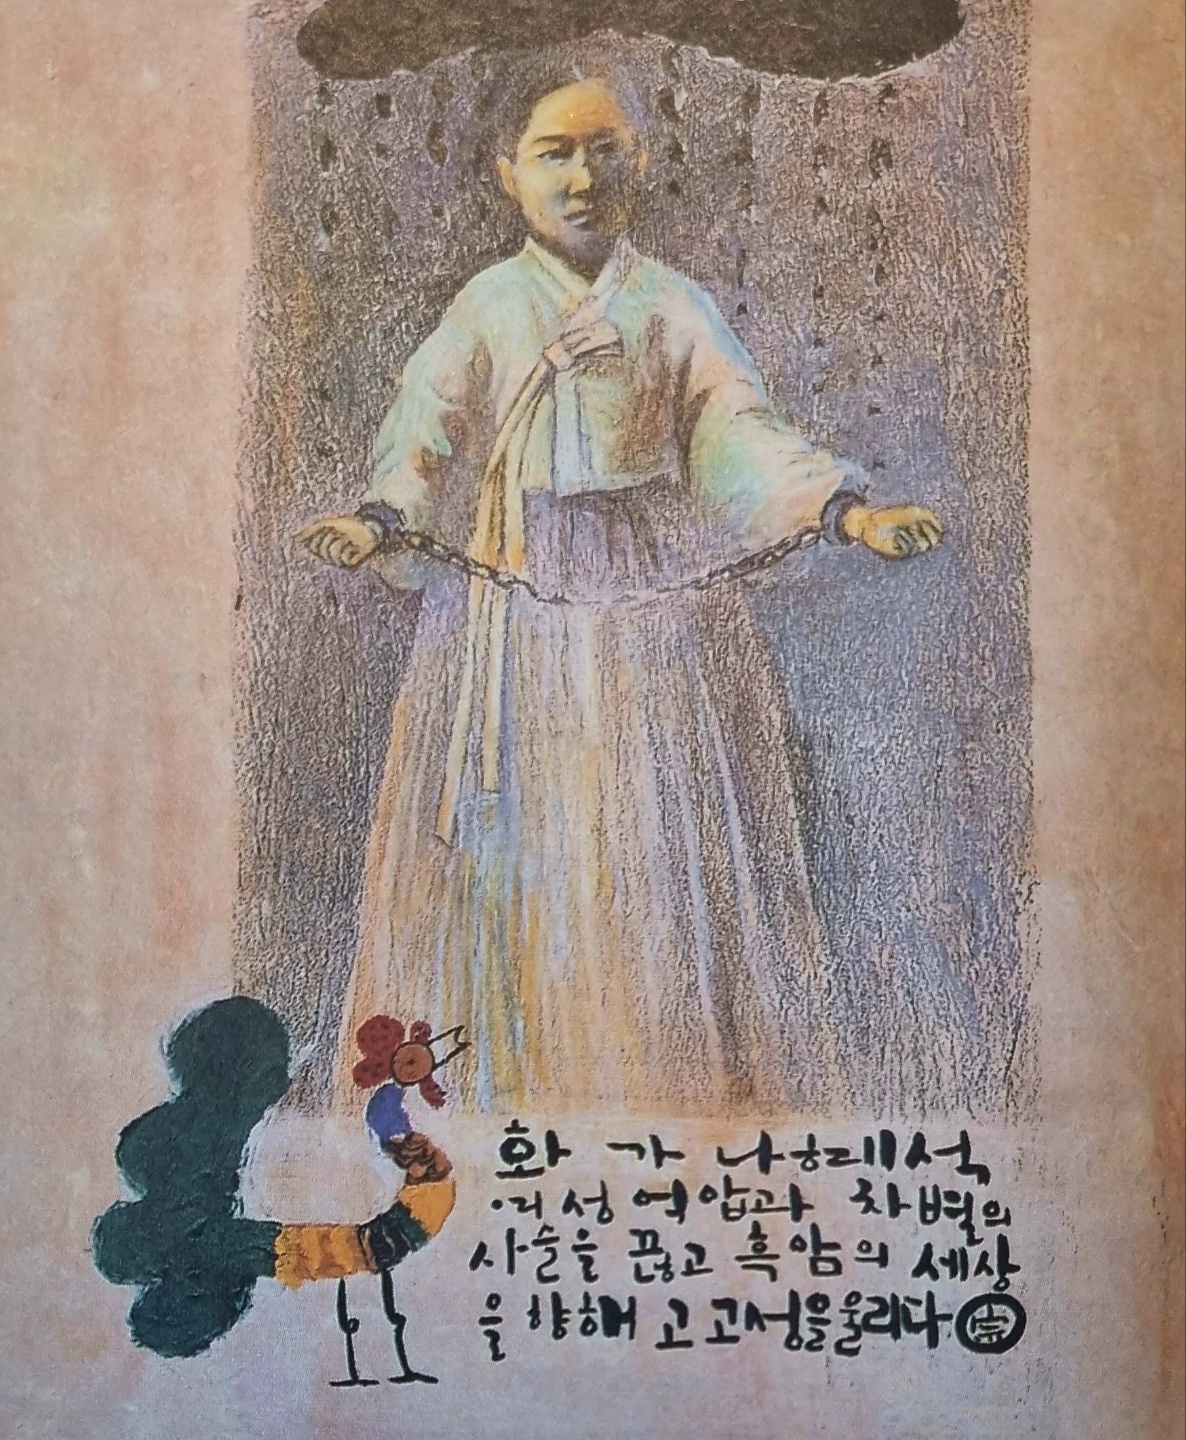 화가 나혜석
여성 억압과 차별의
사슬을 끊고 흑암의 세상
을 향해 고고성을 울리다